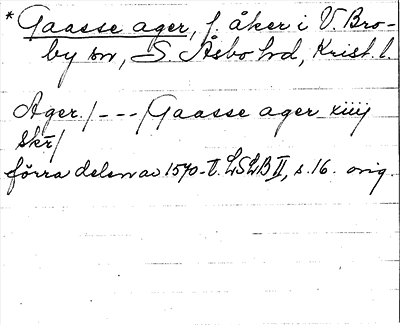 * Gaasse ager, f. åker i V. Bro-
by sn, S. Åsbo hd, Krist. l.
Ager. / - - - / Gaasse ager xiiij
skr /
förra delen av 1570-t. LSLB II, s. 16. orig.